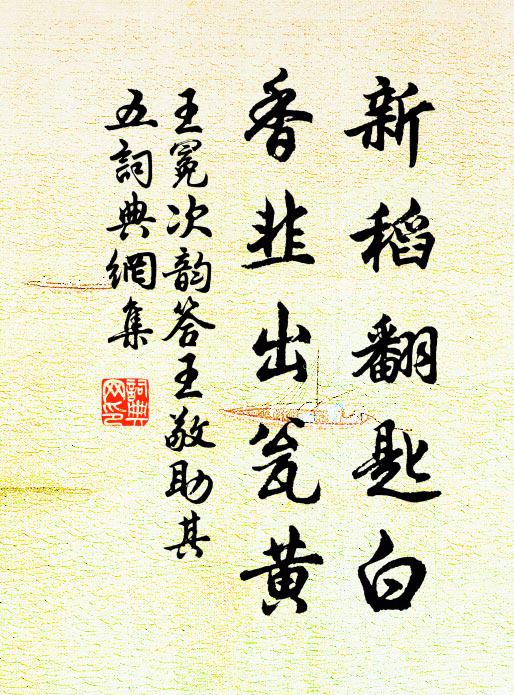 新稻翻匙白
香韭出瓮黄
王冕次韵答王敬助其
五詞典網集
詞典
网印